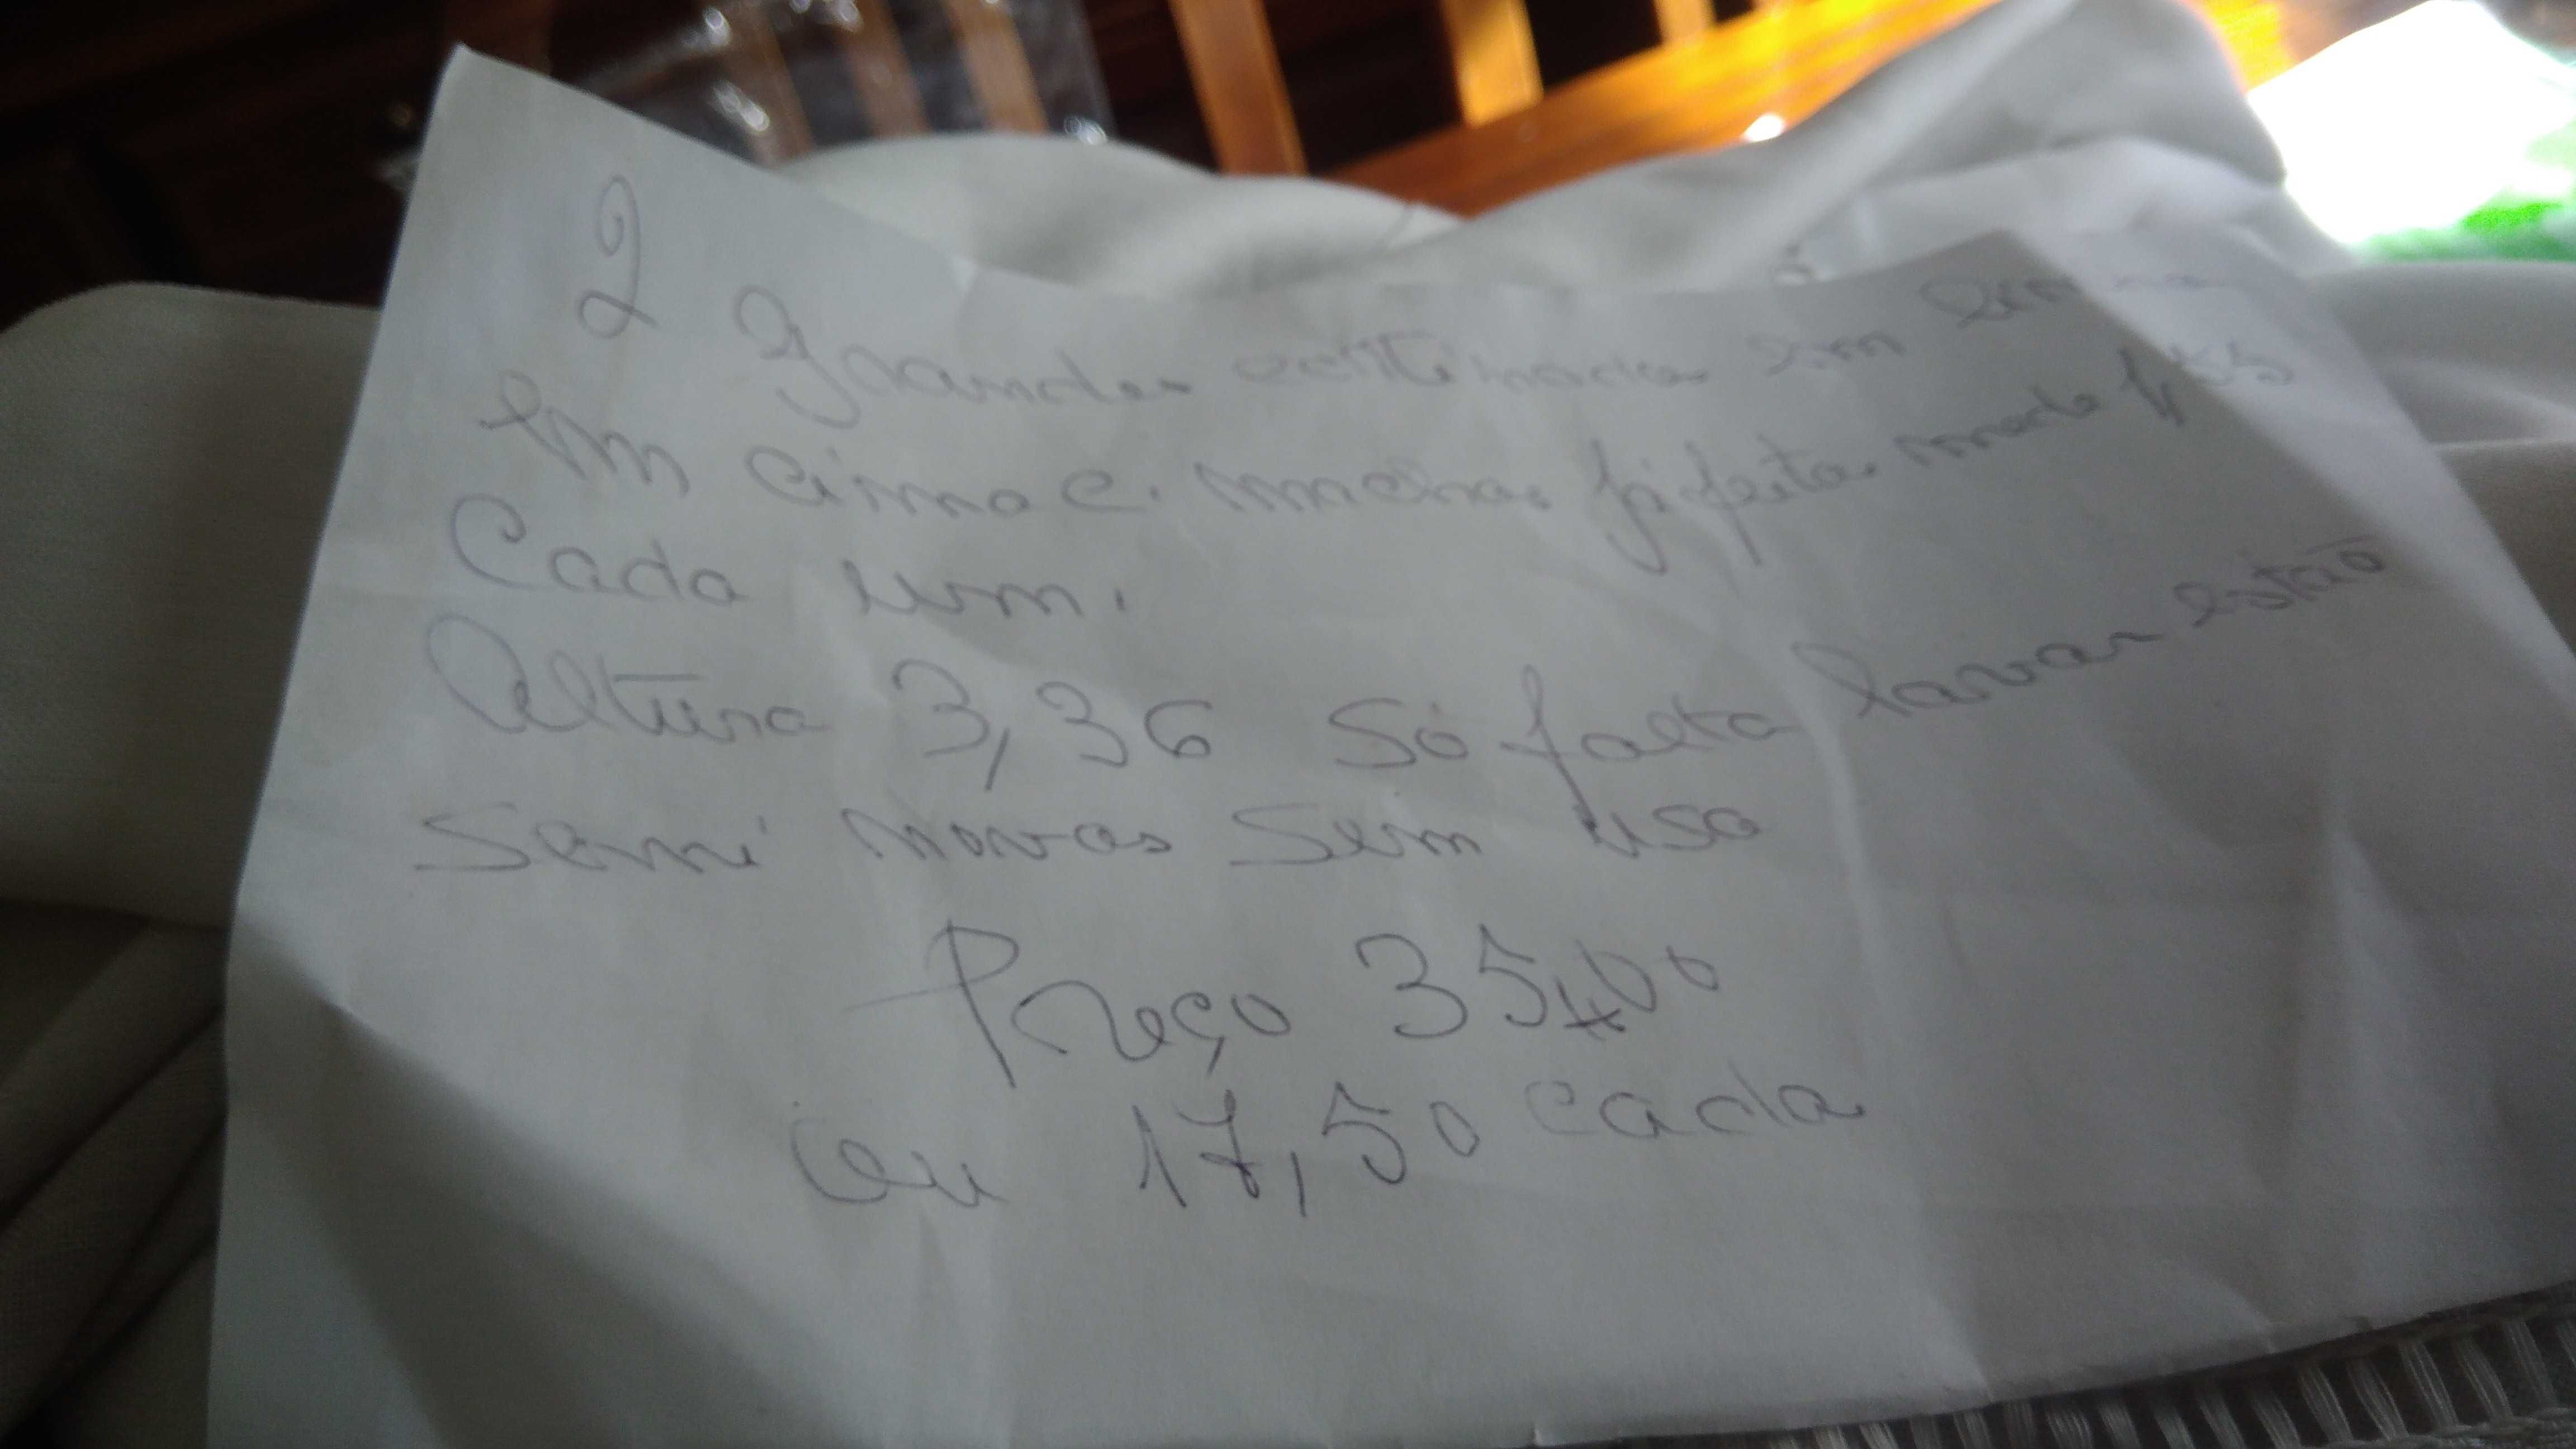 2 Grandes cortinados com
em cima e. já feita mede 1,55
Cada um.
Altura 3,36 Só falta lavar estão
Semi novos Sem uso
Preço 35,00
ou 17,50 cada